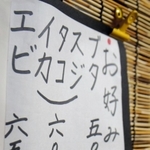 お好み
ブタ 五〇
スジ
タコ 六〇
イカ
エビ 六五